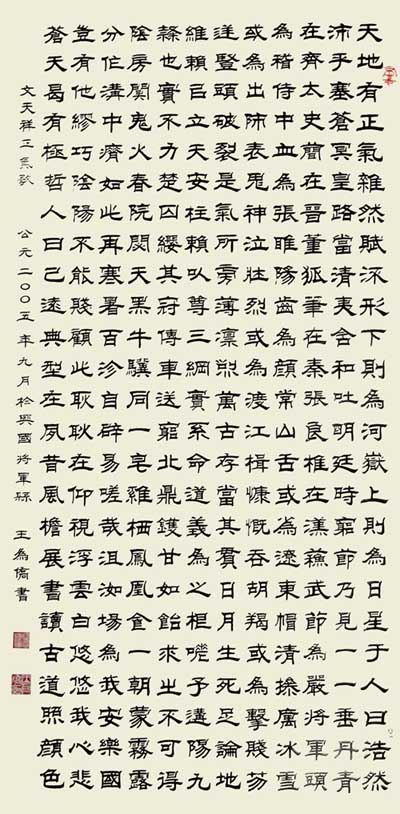 天地有正氣雜然賦流形下則為河嶽上則為日星于人曰浩然
沛乎塞蒼冥皇路當清夷含和吐明廷時窮節乃見一一垂丹青
在齊太史簡在晉董狐筆在秦張良椎在漢蘇武節為嚴將軍頭
為稽侍中血為張睢陽齒為顏常山舌或為遼東帽清操厲冰雪
或為出師表鬼神泣壯烈或為渡江楫慷慨吞胡羯或為擊賊笏
逆豎頭破裂是氣所旁薄凜冽萬古存當其貫日月生死足論地
維賴以立天安柱賴以尊三綱實系命道義為之根嗟予遘陽九
隸也實不力楚囚纓其冠傳車送窮北鼎鑊甘如飴求之不可得
陰房闃鬼火春院閟天黑牛驥同一皂雞栖鳳凰食一朝蒙霧露
分作溝中濟如此再寒暑百沴自辟易嗟哉沮洳場為我安樂國
豈有他繆巧陰陽不能賊顧此耿耿在仰視浮雲白悠悠我心悲
蒼天曷有極哲人日已遠典型在夙昔風檐展書讀古道照顏色
文天祥正氣歌 公元二〇〇五年九月於興國將軍縣 王為僑書